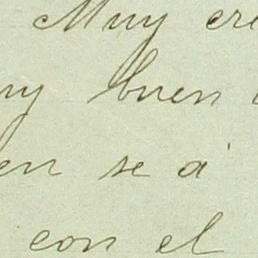 Muy cre
uy buen
en se á
con el